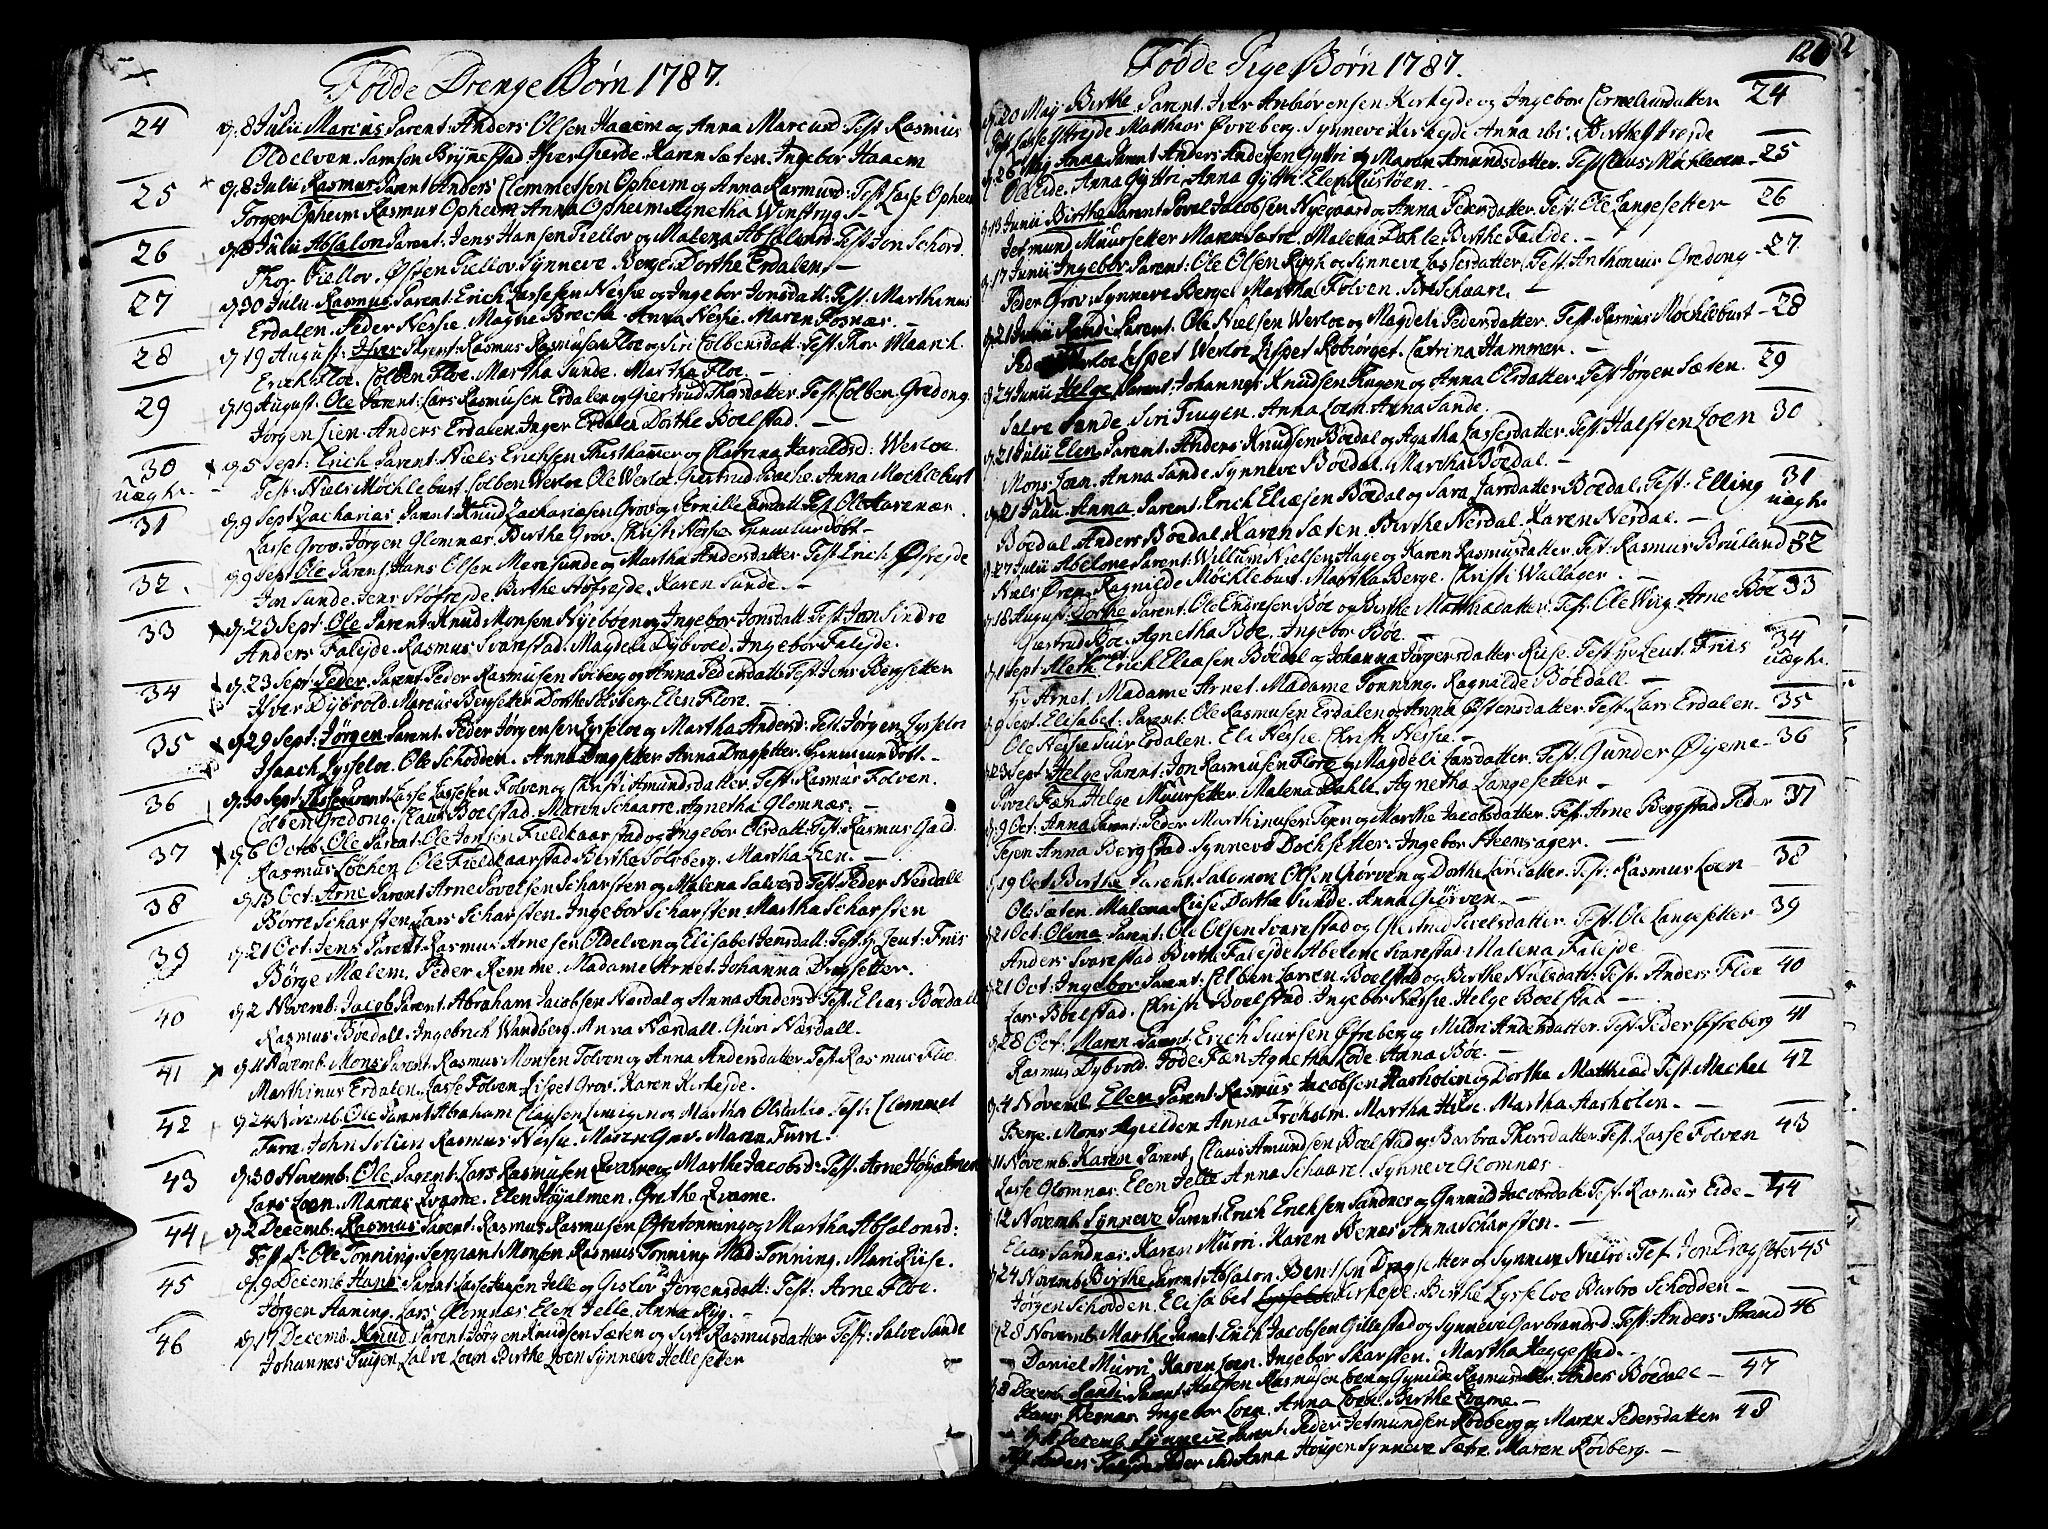 Fødde Drenge Børn 1787.
24
d. 8 Julii Marcus Parent: Anders Olsen Haaem og Anna Marcusd Test: Rasmus
Oldelven. Samson Brynestad. Iver Gierde. Karen Sæten. Ingebor Haaem
25
d. 8 Julii Rasmus Parent Anders Clemmetsen Opheim og Anna Rasmusd: Test: Lasse Opheim
Torger Opheim Rasmus Opheim Anna Opheim Agnetha Winstryg
26
d. 8 Julii Absalon Parent: Jens Hansen Tiellov og Malena Absalonsd: Test: Jon Schord.
Thor Tiellov. Østen Tiellov. Synneve Berge. Dorthe Erdalen. —
27
d. 30 Julii Rasmus Parent: Erich Lassesen Nessie og Ingebor Jonsdatt: Test: Marthinus
Erdalen. Peder Nessie. Magne Brecke. Anna Nessie. Maren Fosnæs. —
28
d. 19 August: Iver Parent: Rasmus Rasmusen Floe og Siri Colbensdatt: Test: Thor Maarch.
Erich Floe. Colben Floe. Martha Sunde. Martha Floe. —
29
d. 19 August: Ole Parent: Lars Rasmusen Erdalen og Giertrud Thorsdatter. Test: Colben Gredong.
Jørgen Lien. Anders Erdalen. Inger Erdalen Dorthe Boelstad. —
30
uægte.
d. 5 Sept: Erich Parent: Niels Erichsen Tisthamer og Chatrina Haraldsd: Werloe.
Test: Niels Møchlebust. Colben Werloe Ole Werloe. Giertrud Anna Møchlebust
31
d. 9 Sept Zacharias Parent: Knud Zachariasen Grov og Pernille Test: Ole Aarenæs.
Lasse Grov. Jørgen Glomnæs. Berthe Grov. Christi Nessie. —
32.
d. 9 Sept Ole Parent: Hans Olsen Meresunde og Martha Andersdatter Test: Erich
Jon Sunde. Jens Støfrejde. Berthe Støfrejde. Karen Sunde. —
33
d. 23 Sept: Ole Parent: Knud Monsen Nyebøen og Ingebor Jonsdatt: Test: Jon Sindre
Anders Falejde. Rasmus Svarstad. Magdeli Dybvold. Ingebor Falejde.
34
d. 23 Sept: Peder Parent Peder Rasmusen og Anna Pedersdatt: Test: Jens Bergsetter
Ifver Dybvold. Marcus Bergsetter Dorthe Elen Flore. —
35
d. 29 Sept: Jørgen Parent: Peder Jørgensen Lysseloe og Martha Andersd: Test: Jørgen Lysseloe
Isaach Lysseloe. Ole Schodden. Anna Dragsetter. Anna Dragsetter. —
36
d. 30 Sept: Lasse Parent: Lasse Lassesen Folven og Christi Amundsdatter. Test: Rasmus Folven.
Colben Gredong. Claus Boelstad. Maren Schaarre. Agnetha Glomnæs. —
37
d. 6 Octob. Ole Parent: Ole Jonsen Fieldkaarstad og Ingebor Olsdatt: Test: Rasmus Gald.
Rasmus Løchen Ole Fieldkaarstad. Berthe Solvberg. Martha Lien. —
38
d. 13 Oct: Arne Parent Arne Povelsen Scharsten og Malena Salvesd Test: Peder Nesdall
Børre Scharsten Lars Scharsten. Ingebor Scharsten Martha Scharsten
39
d. 21 Oct: Jens Parent: Rasmus Arnesen Oldelven og Elisabet Jensdatt: Test: H Leut. Friis
Børge Mælem. Peder Remme. Madame Arnet. Johanna Dragsetter.
40
d. 2 Novemb: Jacob Parent: Abraham Jacobsen Nesdal og Anna Andersd Test: Elias Bødall
Rasmus Bødall. Ingebrich Wandberg. Anna Næsdall. Guri Næsdall.
41
d. 11 Novemb: Mons Parent: Rasmus Monsen Folven og Anna Andersdatter. Test: Rasmus Floe.
Marthinus Erdalen. Lasse Folven. Lispet Grov. Karen Kirkejde.
42
d. 24 Novemb. Ole Parent Abraham Clausen og Martha Olsdatter Test: Clemmet
Tura. John Rasmus Nessie. Maren Grov. Maren Turn.
43
d. 30 Novemb. Ole Parent: Lars Rasmusen Qvame og Marthe Jacobsd: Test: Arne Høyalmen
Lars Loen. Marcus Qvame. Elen Høyalmen. Grethe Qvame.
44
d. 2 Decemb. Rasmus Parent: Rasmus Rasmusen Østetonning og Martha Absalonsd:
Test: Sr Ole Tonning. Sergiant Monsen Rasmus Tonning Mad: Tonning. Mari Riise.
45
d. 9 Decemb. Hans Parent: Lasse Hansen Jelle og Gislov Jørgensdatt: Test: Arne Floe.
Jørgen Haning. Lars Glomnæs Elen Jelle. Anna Ryg. —
46
d. 17 Decemb. Knud Parent Jørgen Knudsen Sæten og Siri Rasmusdatter Test: Salve Sande
Johannes Tuigen Salve Loen Berthe Loen Synneve Hellesetter
Fødde Pige Børn 1787.
24
d. 20 Maj Birthe Parent: Iver Anbiørensen Kirkejde og Ingebor Corneliusdatter
Test: Lasse Yttrejde Matthias Øvreberg. Synneve Kirkejde Anna ibi: Birthe Ytrejde
25
d. 26 Maj Anna Parent Anders Andersen Gyttri og Maren Amundsdatter. Test: Claus Møchleven.
Ole Eide. Anna Gyttri. Anna Gyttri. Elen Rustøen. —
26
d. 13 Junii Birthe Parent Povel Jacobsen Nyegaard og Anna Pedersdatter. Test: Ole Langesetter
Jetmund Muursetter Maren Sætre. Malena Dahle. Birthe Falejde. —
27
d. 17 Junii Ingebor Parent: Ole Olsen Rygh og Synneve Lassesdatter Test: Anthonius Gredong
Peder Grov. Synneve Berge. Martha Folven. Siri Schaare. —
28
d. 21 Junii Randi Parent: Ole Nielsen Werloe og Magdeli Pedersdatter. Test: Rasmus Møchlebust
Peder Werloe Lispet Werloe Lispet Robiørget. Catrina Hammer. —
29
d. 24 Junii Helge Parent: Johannes Knudsen Tuigen og Anna Olsdatter. Test: Jørgen Sæten.
Salve Sande. Siri Tuigen. Anna Loen. Anna Sande.
30
d. 21 Julii Elen Parent: Anders Knudsen Bødal og Agatha Lassesdatter. Test: Halsten Loen
Mons Loen. Anna Sande. Synneve Bødal. Martha Bødal. —
31
uægte
d. 21 Julii Anna. Parent: Erich Eliæsen Bødal og Sara Larsdatter Bødal. Test: Elling
Bødal Anders Bødal. Karen Sæten. Birthe Nesdal. Karen Nesdal. —
32
d. 27 Julii Abelone Parent: Willum Nielsen Hage og Karen Rasmusdatter. Test: Rasmus Bruland
Niels Øren. Ragnilde Møchlebust. Martha Berge. Christi Wallager. —
33
d. 18 August: Dorthe Parent: Ole Endresen Bøe og Birthe Matthiadatter. Test: Ole Wiig. Arne Bøe
Giertrud Bøe. Agnetha Bøe. Ingebor Bøe.
34
uægte
d. 1 Sept Mette Erich Eliæsen Bødal og Johanna Jørgensdatter Riise. Test: H. Leut. Friis
H: Arnet. Madame Arnet. Madame Tonning. Ragnilde Bødall. —
35
d. 9 Sept. Elisabet. Parent: Ole Rasmusen Erdalen og Anna Østensdatter. Test: Lars Erdalen.
Ole Nessie. Siur Erdalen. Eli Nessie. Christi Nessie. —
36
d. 23 Sept Helge Parent: Jon Rasmusen Flore og Magdeli Larsdatter. Test: Gunder Øyeme
Povel Fæn Helge Muursetter. Malena Dahle. Agnetha Langesetter —
37
d. 9 Oct. Anna Parent: Peder Marthinusen Tejen og Marthe Jacobsdatter. Test: Arne Bergstad Peder
Tejen Anna Bergstad Synneve Dochsetter. Ingebor Steensager. —
38
d. 19 Oct Birthe Parent. Salomon Olsen Giørven og Dorthe Larsdatter. Test: Rasmus Loen
Ole Sæten. Malena Riise. Dorthe Sunde. Anna Giørven. —
39
d. 21 Oct: Olina Parent: Ole Olsen Svarestad og Giertrud Povelsdatter. Test: Ole Langesetter
Anders Svarestad Birthe Falejde. Abelone Svarestad. Malena Falejde.
40
d. 21 Oct. Ingebor Parent: Colben Larsen Boelstad og Birthe Nielsdatt: Test: Anders Floe
Lars Boelstad. Christi Boelstad. Ingebor Nessie. Helge Boelstad —
41
d. 28 Oct: Maren. Parent: Erich Siursen Øfreberg og Mildri Andersdatter. Test: Peder Øfreberg
Rasmus Dybvold. Tode Fæn Agnetha Kode. Anna Bøe. —
42
d. 4 Novemb Elen Parent: Rasmus Jacobsen Aarholen og Dorthe Matthiæd Test: Mechel
Berge. Mons Agielden Anna Frøholm. Martha Hilse. Martha Aarholen. —
43
d. 11 Novemb. Karen Parent Claus Amundsen Boelstad og Barbra Thorsdatter. Test: Lasse Folven
Lasse Glomnæs. Elen Jelle. Anna Schaare. Synneve Glomnæs.
44
d. 12 Novemb. Synneve Parent: Erich Erichsen Sandnes og Gunnild Jacobsdatt: Test: Rasmus Eide
Elias Sandnæs. Karen Murri. Karen Nenæs Anna Scharsten. —
45
d. 24 Novemb Birthe Parent Absalon Bentsen Dragsetter og Synneve Test: Jon Dragsetter
Jørgen Schodden. Elisabet Kirkejde. Birthe Lysseloe Barbro Schodden —
46
d. 28 Novemb: Marthe Parent Erich Jacobsen Gillestad og Synneve Garbrandsd: Test: Anders Strand
Daniel Murri. Karen Loen. Ingebor Skarsten. Martha Haggestad. —
47
d. 8 Decemb. Randi Parent Halsten Rasmusen Loen og Gunilde Rasmusdatter. Anders Bødall —
Hans Nesnæs. Ingebor Loen. Anna Loen. Berthe Qvame. —
48
d. 11 Decemb Synneve Parent: Peder Jetmundsen Rødberg og Maren Pedersdatter
Test: Anders Falejde Peder Anna Hougen Synneve Sætre Maren Rødberg. —